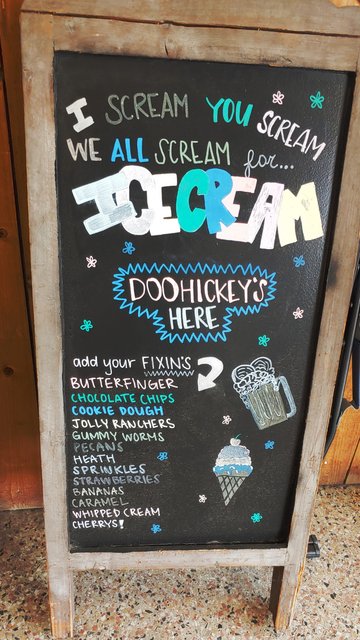 I SCREAM YOU SCREAM
WE ALL SCREAM for...
ICE CREAM
DOOHICKEY'S
HERE
add your FIXIN'S
BUTTERFINGER
CHOCOLATE CHIPS
COOKIE DOUGH
JOLLY RANCHERS
GUMMY WORMS
PECANS
HEATH
SPRINKLES
STRAWBERRIES
BANANAS
CARAMEL
WHIPPED CREAM
CHERRYS!